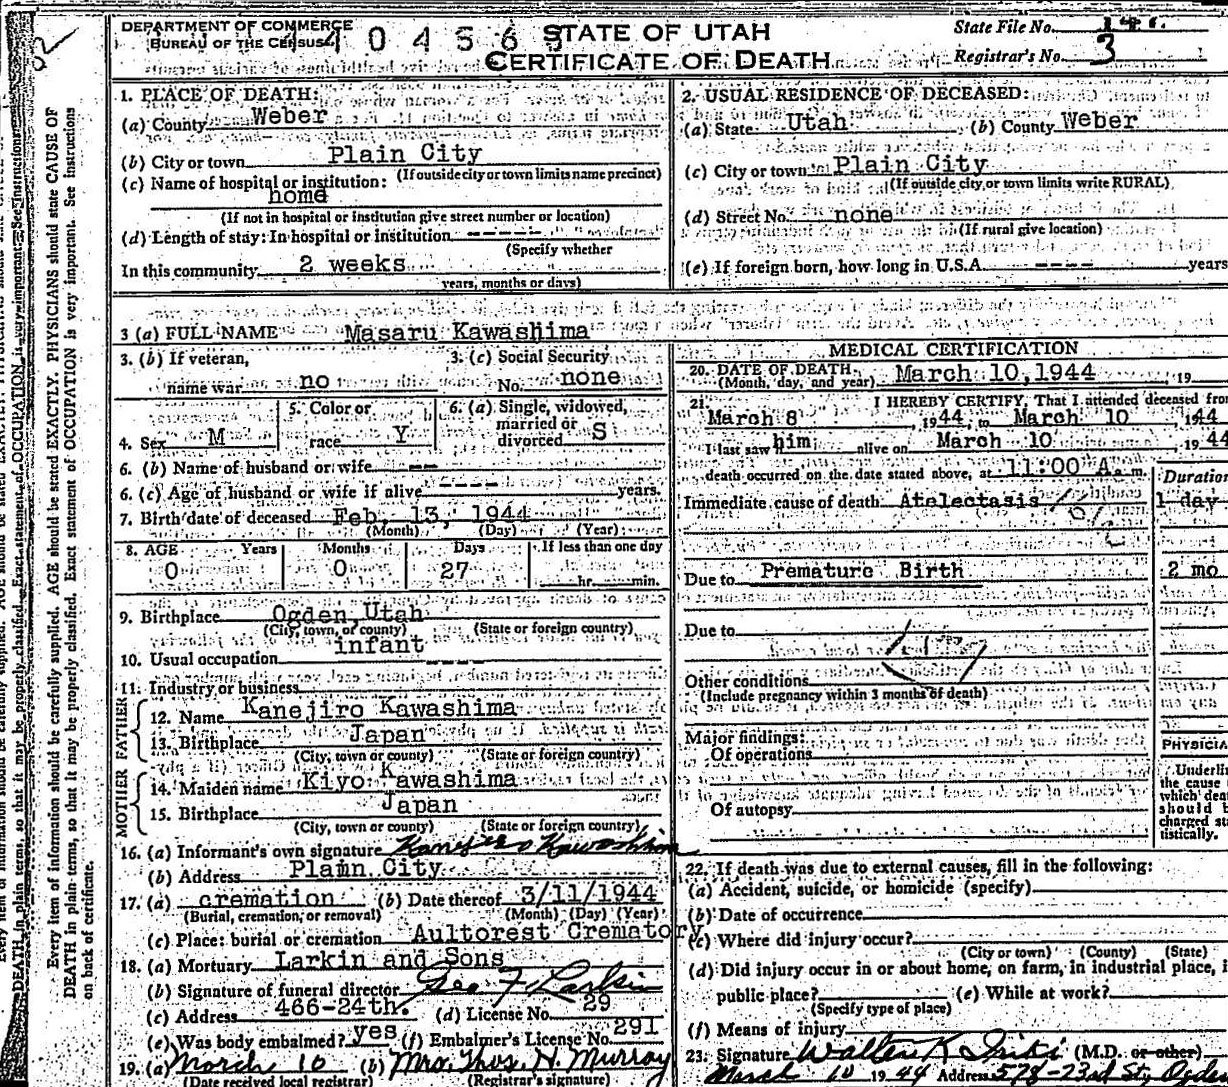 DEPARTMENT OF COMMERCE
BUREAU OF THE CENSUS
STATE OF UTAH
CERTIFICATE OF DEATH
State File No.
Registrar's No. 3
1. PLACE OF DEATH:
(a) County Weber
(b) City or town Plain City
(If outside city or town limits name precinct)
(c) Name of hospital or institution:
home
(If not in hospital or institution give street number or location)
(d) Length of stay: In hospital or institution -----
(Specify whether
In this community 2 weeks
years, months or days)
2. USUAL RESIDENCE OF DECEASED:
(a) State Utah (b) County Weber
(c) City or town Plain City
(If outside city or town limits write RURAL)
(d) Street No. none
(If rural give location)
(e) If foreign born, how long in U.S.A. ---- years
3 (a) FULL NAME Masaru Kawashima
3. (b) If veteran, name war no
3. (c) Social Security No. none
4. Sex M
5. Color or race Y
6. (a) Single, widowed, married or divorced S
6. (b) Name of husband or wife --
6. (c) Age of husband or wife if alive ---- years.
7. Birth date of deceased Feb. 13, 1944
(Month) (Day) (Year)
8. AGE Years Months Days If less than one day
0 0 27 hr. min.
9. Birthplace Ogden, Utah
(City, town, or county) (State or foreign country)
10. Usual occupation infant
11. Industry or business ---
FATHER
12. Name Kanejiro Kawashima
13. Birthplace Japan
(City, town or county) (State or foreign country)
MOTHER
14. Maiden name Kiyo Kawashima
15. Birthplace Japan
(City, town or county) (State or foreign country)
16. (a) Informant's own signature Kanejiro Kawashima
(b) Address Plain City
17. (a) cremation (b) Date thereof 3/11/1944
(Burial, cremation, or removal) (Month) (Day) (Year)
(c) Place: burial or cremation Aultorest Crematory
18. (a) Mortuary Larkin and Sons
(b) Signature of funeral director Geo F. Larkin
(c) Address 466-24th. (d) License No. 29
(e) Was body embalmed? yes (f) Embalmer's License No. 291
19. (a) March 10 (b) Mrs. Thos. N. Murray
(Date received local registrar) (Registrar's signature)
MEDICAL CERTIFICATION
20. DATE OF DEATH March 10, 1944, 19
(Month, day, and year)
21. I HEREBY CERTIFY, That I attended deceased from
March 8, 1944, to March 10, 1944
I last saw him alive on March 10 1944
death occurred on the date stated above, at 11:00 A. m.
Duration
Immediate cause of death Atelectasis 1 day
Due to Premature Birth 2 mo
Due to
Other conditions
(Include pregnancy within 3 months of death)
Major findings:
Of operations
Of autopsy
PHYSICIA
Underlin
the cause
which dea
should b
charged sta
tistically.
22. If death was due to external causes, fill in the following:
(a) Accident, suicide, or homicide (specify)
(b) Date of occurrence
(c) Where did injury occur?
(City or town) (County) (State)
(d) Did injury occur in or about home, on farm, in industrial place, i
public place? (e) While at work?
(Specify type of place)
(f) Means of injury
23. Signature Walter K (M.D. or other)
March 10 1944 Address 578-23rd St. Ogden
Every item of information should be carefully supplied. AGE should be stated EXACTLY. PHYSICIANS should state CAUSE OF
DEATH in plain terms, so that it may be properly classified. Exact statement of OCCUPATION is very important. See Instructions
on back of certificate.